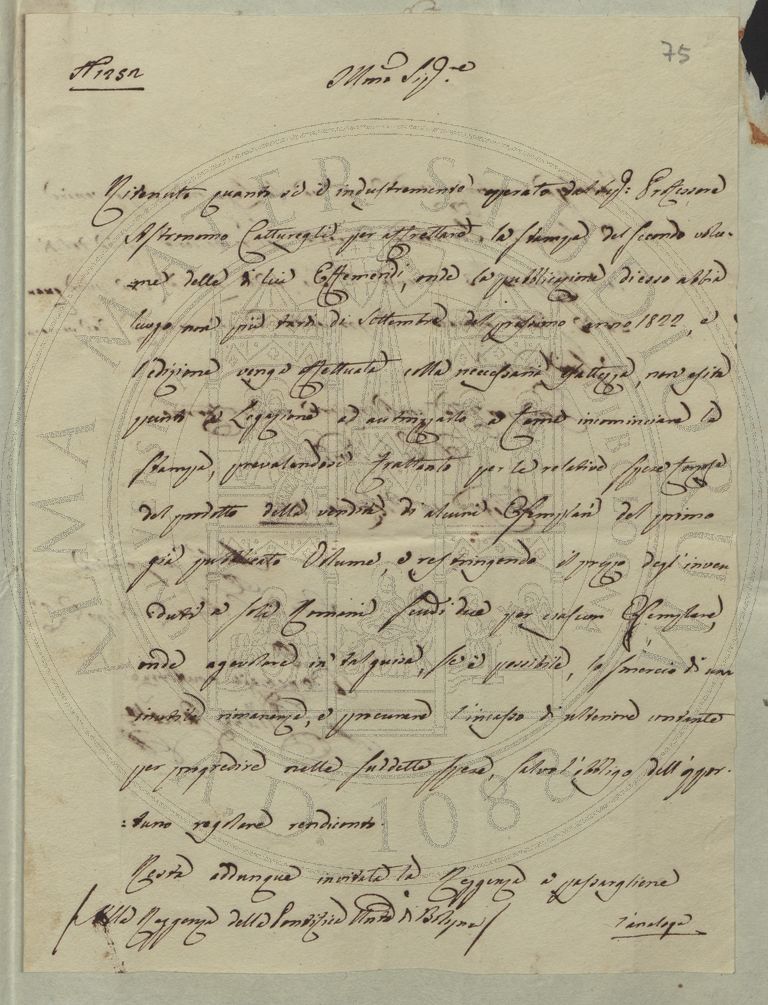 75
N 1252
Illmo Sig.re
Ritenuto quanto si è industremente operato dal Sig. Professore
Astronomo Caturegli per affrettare la stampa del secondo volu-
me delle di lui Effemeridi, onde la pubblicazione di esso abbia
luogo non più tardi di Settembre del prossimo anno 1822, e
l'edizione venga effettuata colla necessaria esattezza, non esita
punto la Legazione ad autorizzarlo a farne incominciare la
stampa, prevalendosi frattanto per le relative spese
del prodotto della vendita di alcuni Esemplari del primo
già pubblicato Volume, e restringendo il prezzo degl'inven
duti a soli Romani Scudi due per ciascun Esemplare,
onde agevolare in tal guisa, se è possibile, lo smercio di una
inutile rimanenza, e procurare l'incasso di ulteriore contante
per progredire nelle suddette spese, salvo l'obbligo dell'oppor-
:tuno regolare rendiconto.
Resta addunque invitata la Reggenza a passargliene
Alla Reggenza della Pontificia Università di Bologna l'analoga
ALMA MATER STUDIORUM
A.D. 1088